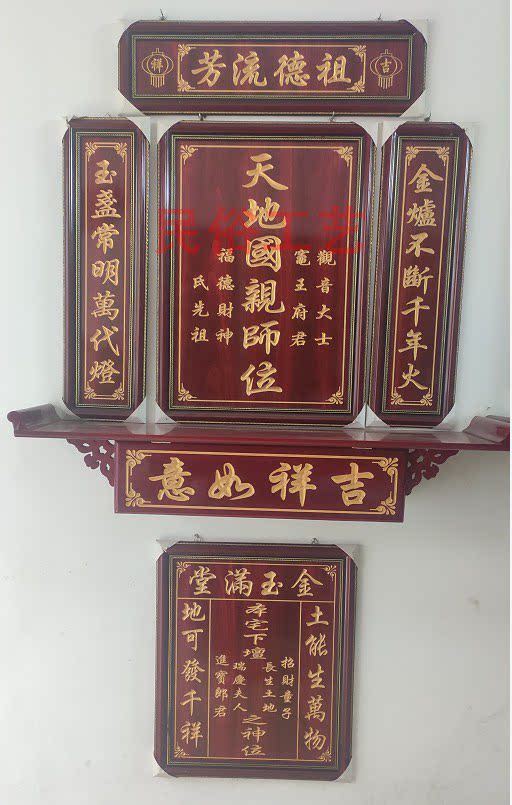 祥 祖德流芳 吉
金爐不斷千年火
天地國親師位
觀音大士
竈王府君
福德財神
氏先祖
玉盏常明萬代燈
民俗工艺
吉祥如意
金玉滿堂
土能生萬物
招財童子
長生土地
本宅下壇之神位
瑞慶夫人
進寶郎君
地可發千祥